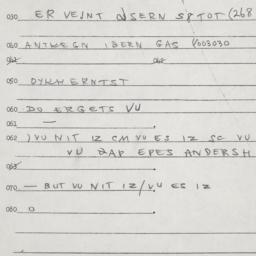 030 ER VEINT UNSERN SPTOT (268
060 ANTKEGN IBERN GAS 4003030
061 062
050 DYKH ERNTST
060 DO ERGETS VU
061 —
062 ) VU NIT IZ CM VU ES IZ SC VU
VU ZAP EPES ANDERSH
063
070 — BUT VU NIT IZ / VU ES IZ
080 0